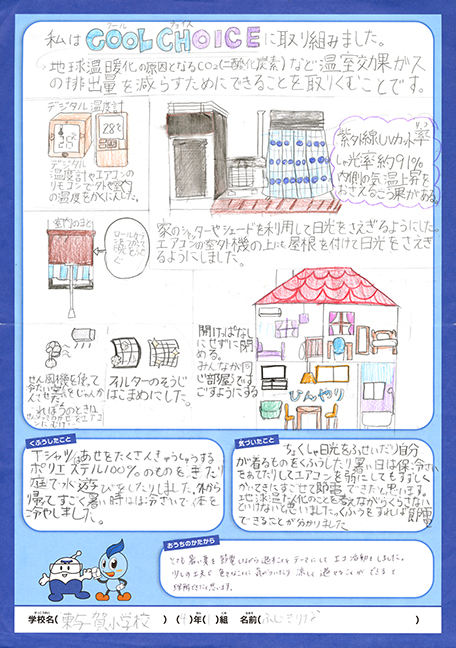 私は COOL CHOICE に取り組みました。
クール チョイス
地球温暖化の原因となるCO₂(二酸化炭素)など温室効果ガス
の排出量を減らすためにできることを取りくむことです。
デジタル温度計
28℃
デジタル
温度計やエアコンの
リモコンで外や室内
の温度をかくにんした。
紫外線UVカット率
しゃ光率約91%
内側の気温上昇を
おさえるこう果がある。
室内のまど
家のシャッターやシェードを利用して日光をさえぎるようにした。
エアコンの室外機の上にも屋根を付けて日光をさえぎ
るようにしました。
せん風機を使って
フィルターのそうじ
はこまめにした。
開けっぱなし
にせずに閉
める。
みんなが同
じ部屋です
ごすようにする
ひんやり
くふうしたこと
Tシャツはあせをたくさんきゅうしゅうする
ポリエステル100%のものをきたり
庭で水遊びをしたりしました。外から
帰ってすごく暑い時はほ冷ざいで体を
冷やしました。
気づいたこと
ちょくしゃ日光をふせいだり自分
が着るものをくふうしたり暑い日は保冷ざい
をあてたりしてエアコンを弱にしてもすずしく
かいてきにすごせて節電できたと思います。
地球温だん化のことを考えながらくらさない
といけないと思いました。くふうをすれば節電
できることが分かりました
おうちのかたから
とても暑い夏を節電しながら過すことをテーマにしてエコ活動をしました。
少しの工夫で色々なことに気がついたり涼しく過せることができると
理解したと思います。
学校名( 東与賀小学校 ) (4)年( )組 名前( )